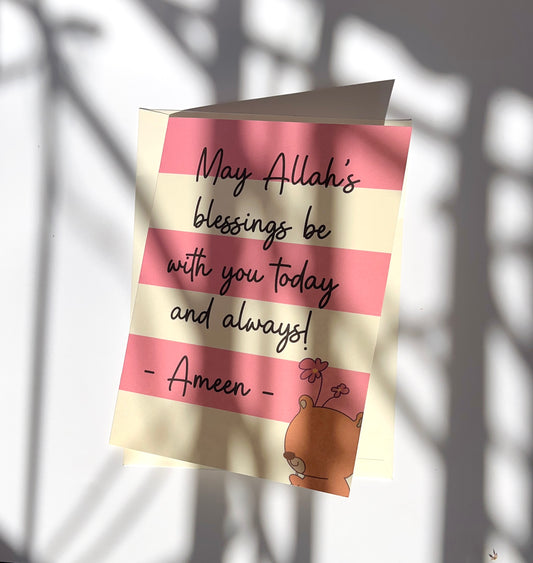 May Allah's
blessings be
with you today
and always!
- Ameen -